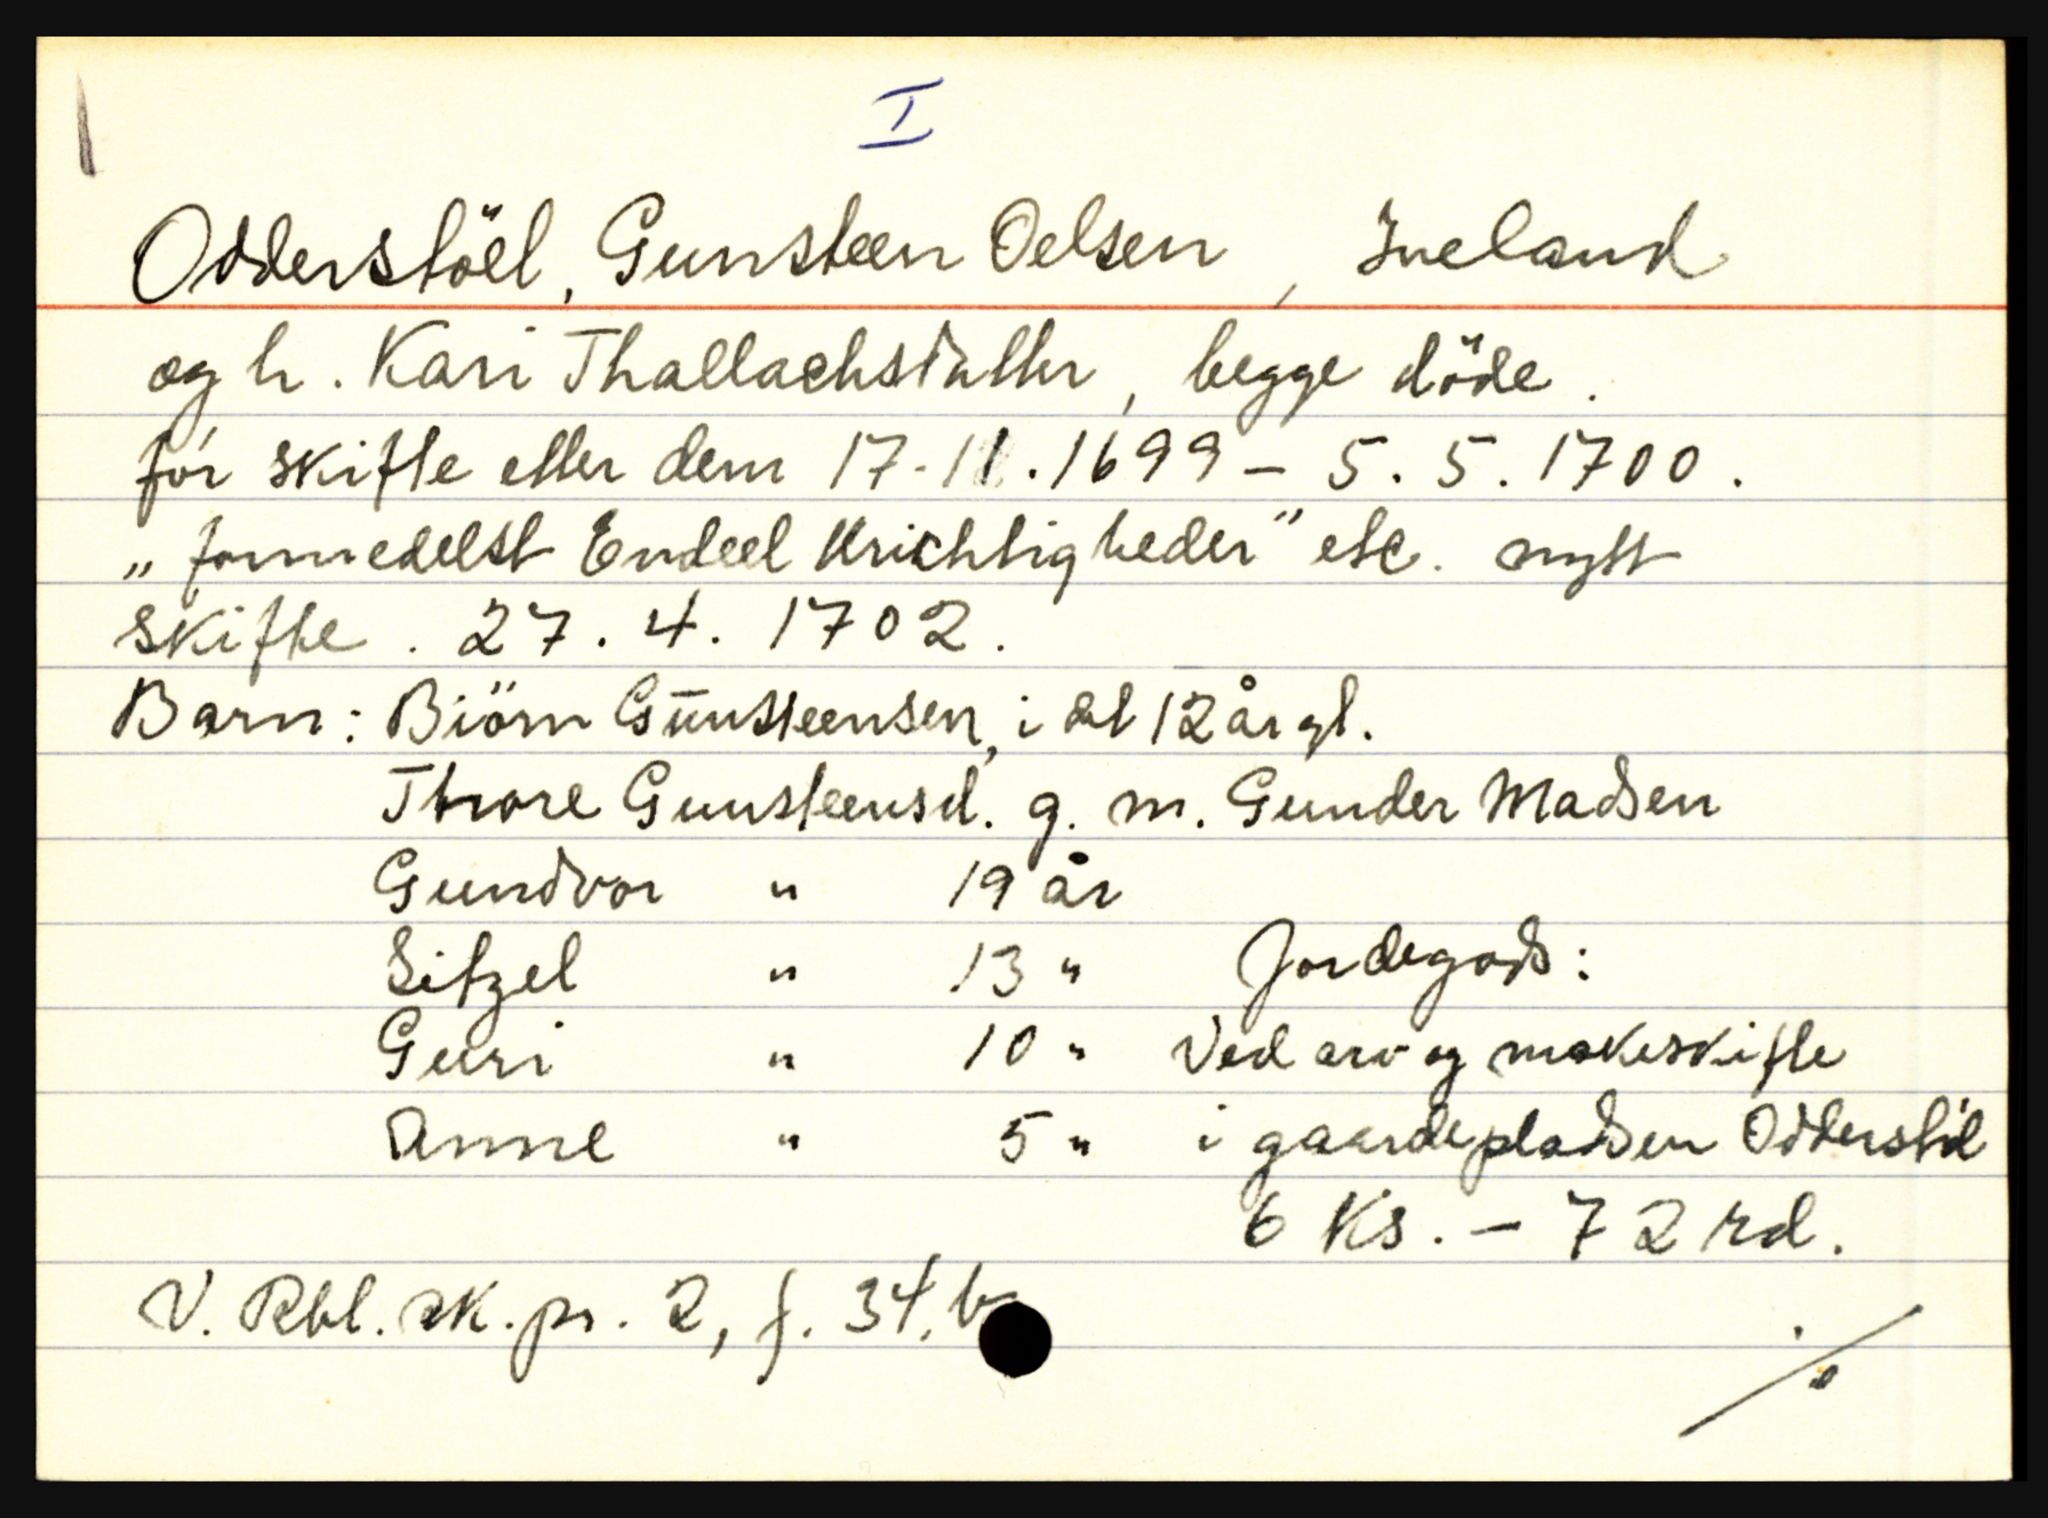 I
Odderstöel, Gunsteen Oelsen, Iveland
og h. Kari Thallachsdatter, begge döde.
för skifte etter dem 17-11.1699 - 5.5.1700.
„formedelst Endeel Urichtigheder" etc. nytt
skifte. 27.4.1702.
Barn: Biörn Gunsteensen, i det 12 år gl.
Thore Gunsteensd. g. m. Gunder Madsen
Gundvor " 19 år
Sitzel " 13 " Jordegods:
Guri " 10 " Ved arv og makeskifte
Anne " 5 " i gaardepladsen Odderstöl
6 Ks. - 72 rd.
V. Rbl. sk.pr. 2, f. 34.b
./.